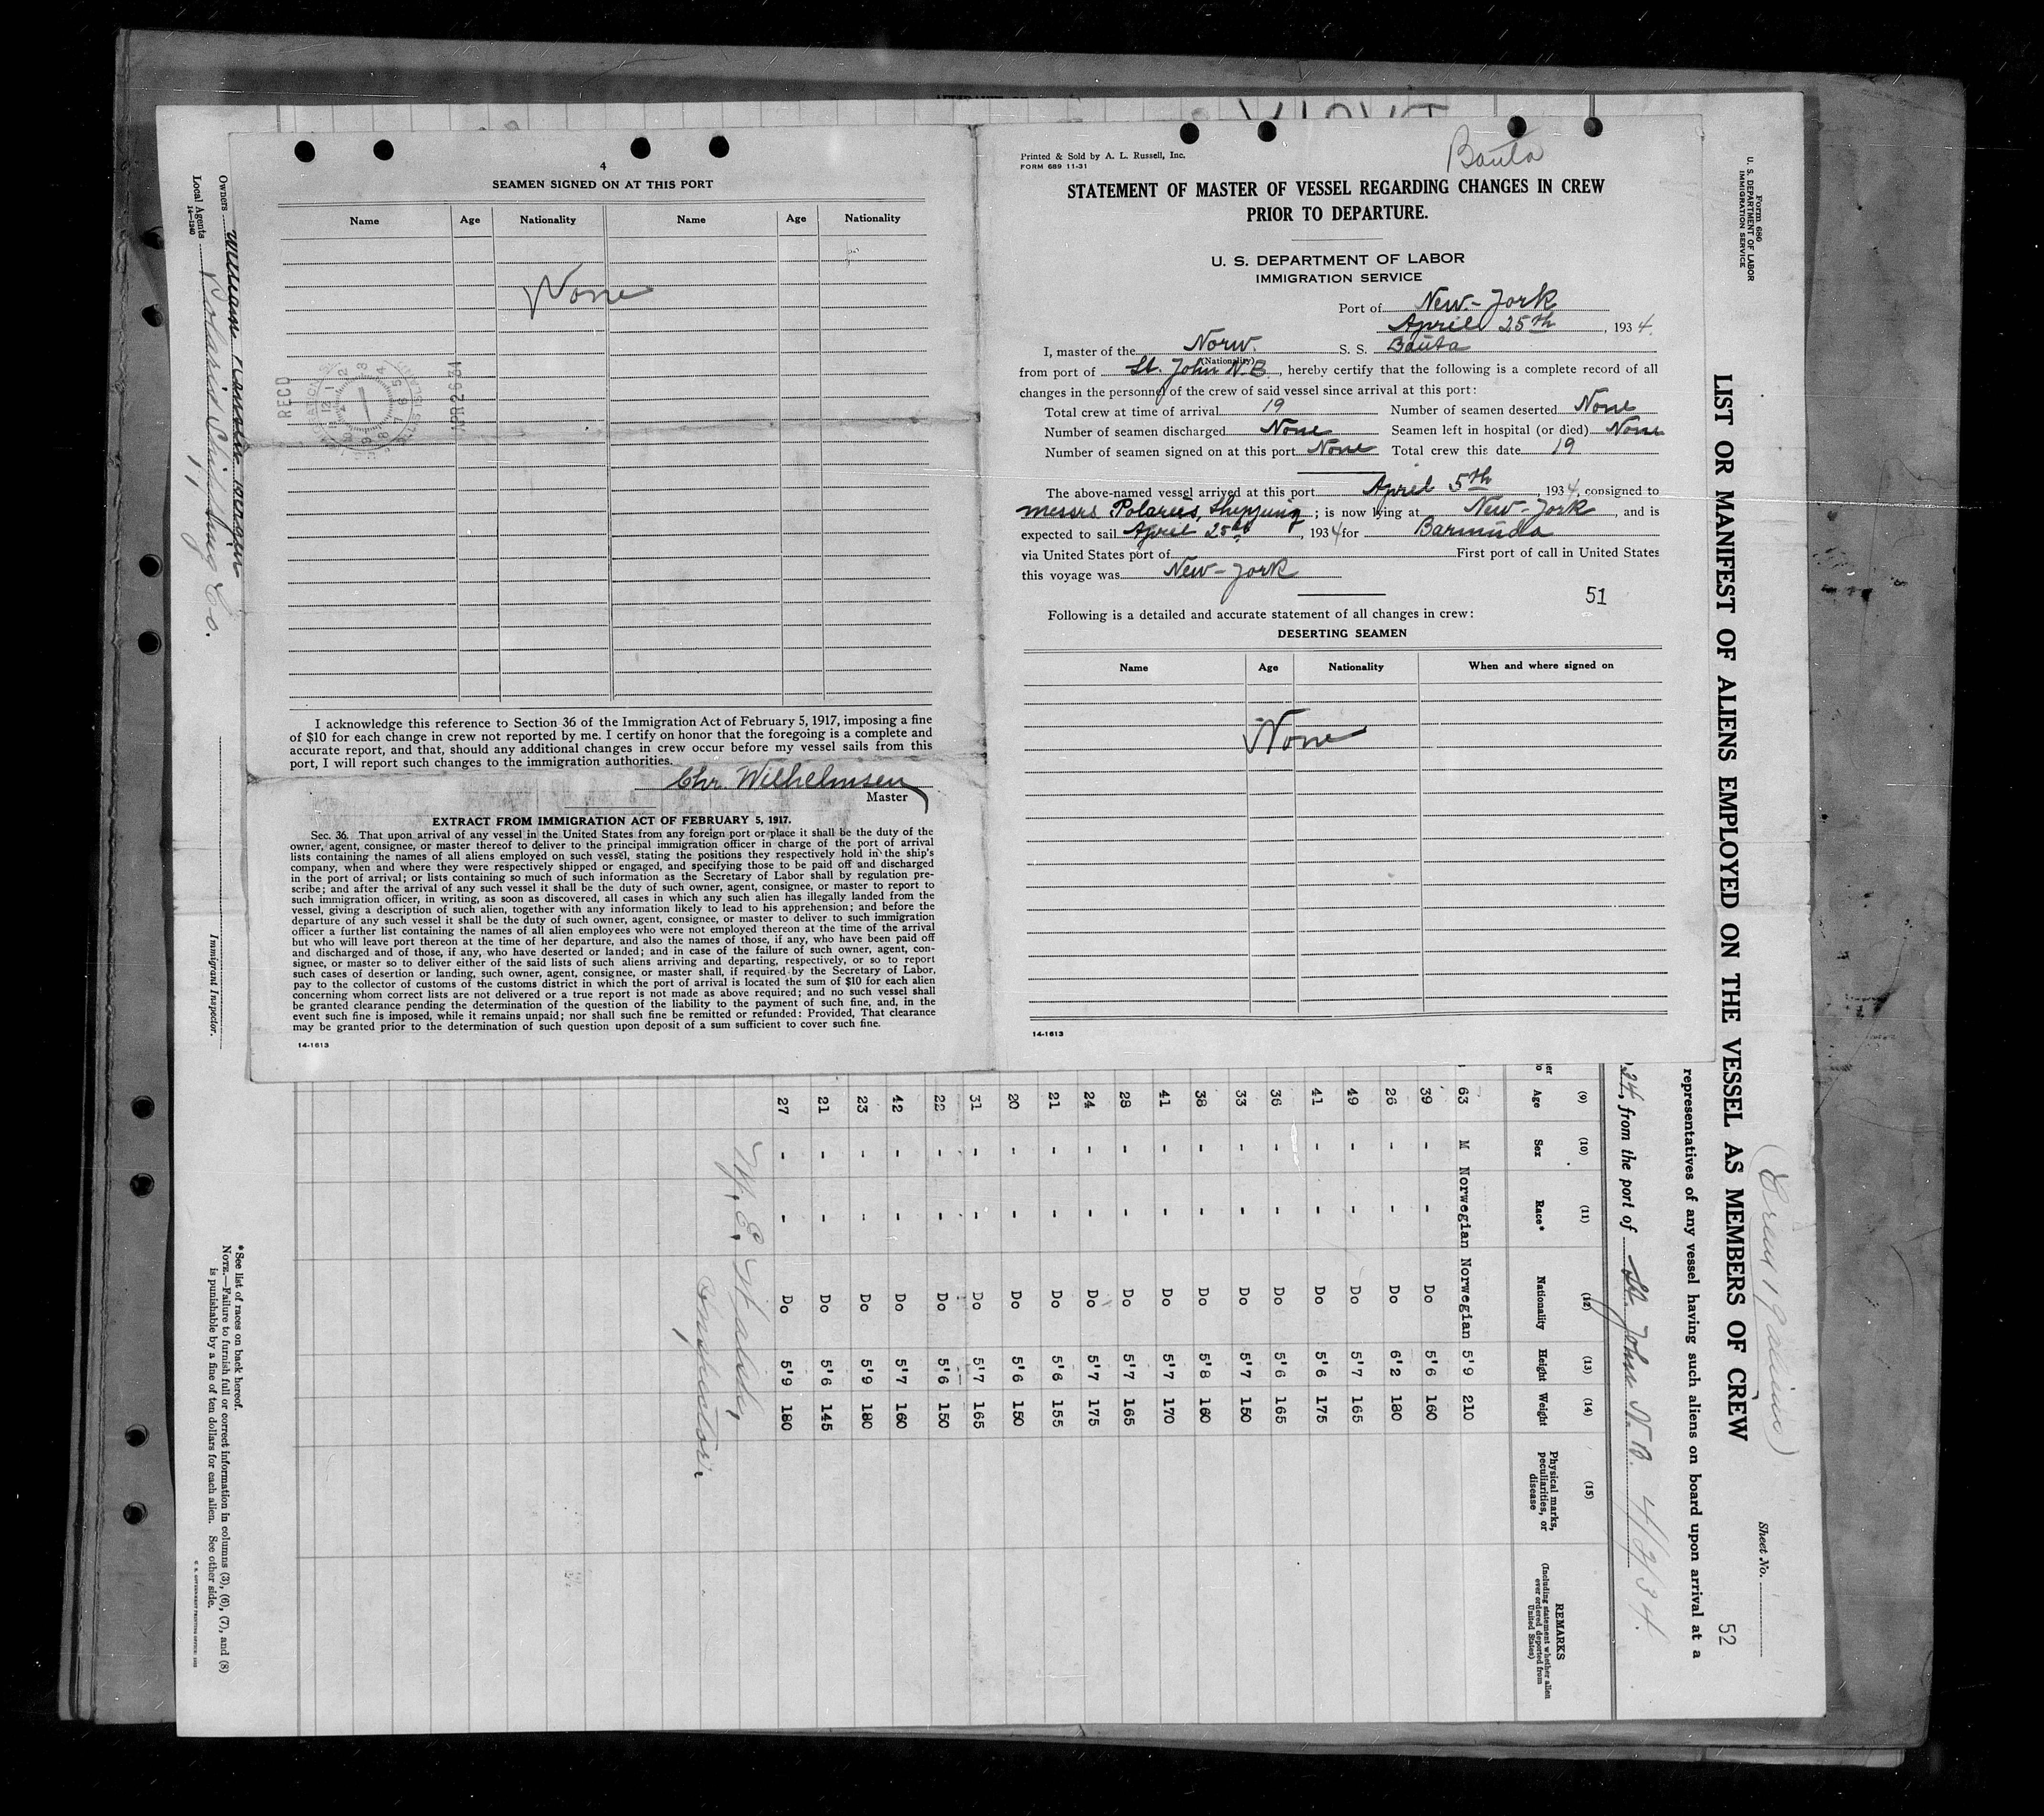 4
SEAMEN SIGNED ON AT THIS PORT
Name Age Nationality Name Age Nationality
None
RECD
APR 26 34
I acknowledge this reference to Section 36 of the Immigration Act of February 5, 1917, imposing a fine
of $10 for each change in crew not reported by me. I certify on honor that the foregoing is a complete and
accurate report, and that, should any additional changes in crew occur before my vessel sails from this
port, I will report such changes to the immigration authorities.
Chr. Wilhelmsen
Master
EXTRACT FROM IMMIGRATION ACT OF FEBRUARY 5, 1917.
Sec. 36. That upon arrival of any vessel in the United States from any foreign port or place it shall be the duty of the
owner, agent, consignee, or master thereof to deliver to the principal immigration officer in charge of the port of arrival
lists containing the names of all aliens employed on such vessel, stating the positions they respectively hold in the ship's
company, when and where they were respectively shipped or engaged, and specifying those to be paid off and discharged
in the port of arrival; or lists containing so much of such information as the Secretary of Labor shall by regulation pre-
scribe; and after the arrival of any such vessel it shall be the duty of such owner, agent, consignee, or master to report to
such immigration officer, in writing, as soon as discovered, all cases in which any such alien has illegally landed from the
vessel, giving a description of such alien, together with any information likely to lead to his apprehension; and before the
departure of any such vessel it shall be the duty of such owner, agent, consignee, or master to deliver to such immigration
officer a further list containing the names of all alien employees who were not employed thereon at the time of the arrival
but who will leave port thereon at the time of her departure, and also the names of those, if any, who have been paid off
and discharged and of those, if any, who have deserted or landed; and in case of the failure of such owner, agent, con-
signee, or master so to deliver either of the said lists of such aliens arriving and departing, respectively, or so to report
such cases of desertion or landing, such owner, agent, consignee, or master shall, if required by the Secretary of Labor,
pay to the collector of customs of the customs district in which the port of arrival is located the sum of $10 for each alien
concerning whom correct lists are not delivered or a true report is not made as above required; and no such vessel shall
be granted clearance pending the determination of the question of the liability to the payment of such fine, and, in the
event such fine is imposed, while it remains unpaid; nor shall such fine be remitted or refunded: Provided, That clearance
may be granted prior to the determination of such question upon deposit of a sum sufficient to cover such fine.
14-1613
Printed & Sold by A. L. Russell, Inc.
FORM 689 11-31
Bauta
STATEMENT OF MASTER OF VESSEL REGARDING CHANGES IN CREW
PRIOR TO DEPARTURE.
U. S. DEPARTMENT OF LABOR
IMMIGRATION SERVICE
Port of New-York
April 25th, 1934.
I, master of the Norw. S. S. Bauta
(Nationality)
from port of St. John N.B., hereby certify that the following is a complete record of all
changes in the personnel of the crew of said vessel since arrival at this port:
Total crew at time of arrival 19 Number of seamen deserted None
Number of seamen discharged None Seamen left in hospital (or died) None
Number of seamen signed on at this port None Total crew this date 19
The above-named vessel arrived at this port April 5th, 1934, consigned to
messrs Shipping; is now lying at New-York, and is
expected to sail April 25th, 1934 for Barmuda
via United States port of First port of call in United States
this voyage was New-York
51
Following is a detailed and accurate statement of all changes in crew:
DESERTING SEAMEN
Name Age Nationality When and where signed on
None
14-1613
Form 680
U. S. DEPARTMENT OF LABOR
IMMIGRATION SERVICE
LIST OR MANIFEST OF ALIENS EMPLOYED ON THE VESSEL AS MEMBERS OF CREW
Sheet No.
52
representatives of any vessel having such aliens on board upon arrival at a
34, from the port of St. John N.B. 4/3/34.
(9) (10) (11) (12) (13) (14) (15)
Age Sex Race* Nationality Height Weight Physical marks, peculiarities, or disease REMARKS
(Including statement whether alien ever ordered deported from United States)
63 M Norwegian Norwegian 5'9 210
39 - - Do 5'6 160
26 - - Do 6'2 180
49 - - Do 5'7 165
41 - - Do 5'6 175
36 - - Do 5'6 165
33 - - Do 5'7 150
38 - - Do 5'8 160
41 - - Do 5'7 170
28 - - Do 5'7 165
24 - - Do 5'7 175
21 - - Do 5'6 155
20 - - Do 5'6 150
31 - - Do 5'7 165
22 - - Do 5'6 150
42 - - Do 5'7 160
23 - - Do 5'9 180
21 - - Do 5'6 145
27 - - Do 5'9 180
W. E. Walsh,
Inspector.
Immigrant Inspector.
Owners William Hansen Bergen
Local Agents Polarid Shipping Co.
14-1240
*See list of races on back hereof.
NOTE.—Failure to furnish full or correct information in columns (3), (6), (7), and (8)
is punishable by a fine of ten dollars for each alien. See other side.